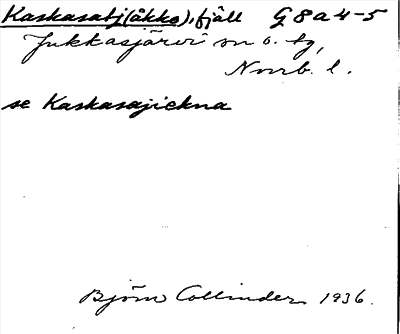 Kaskasatj(åkko), fjäll G8a4-5
Jukkasjärvi sn o. tg,
Norrb. l.
se Kaskasajiekna
Björn Collinder 1936.